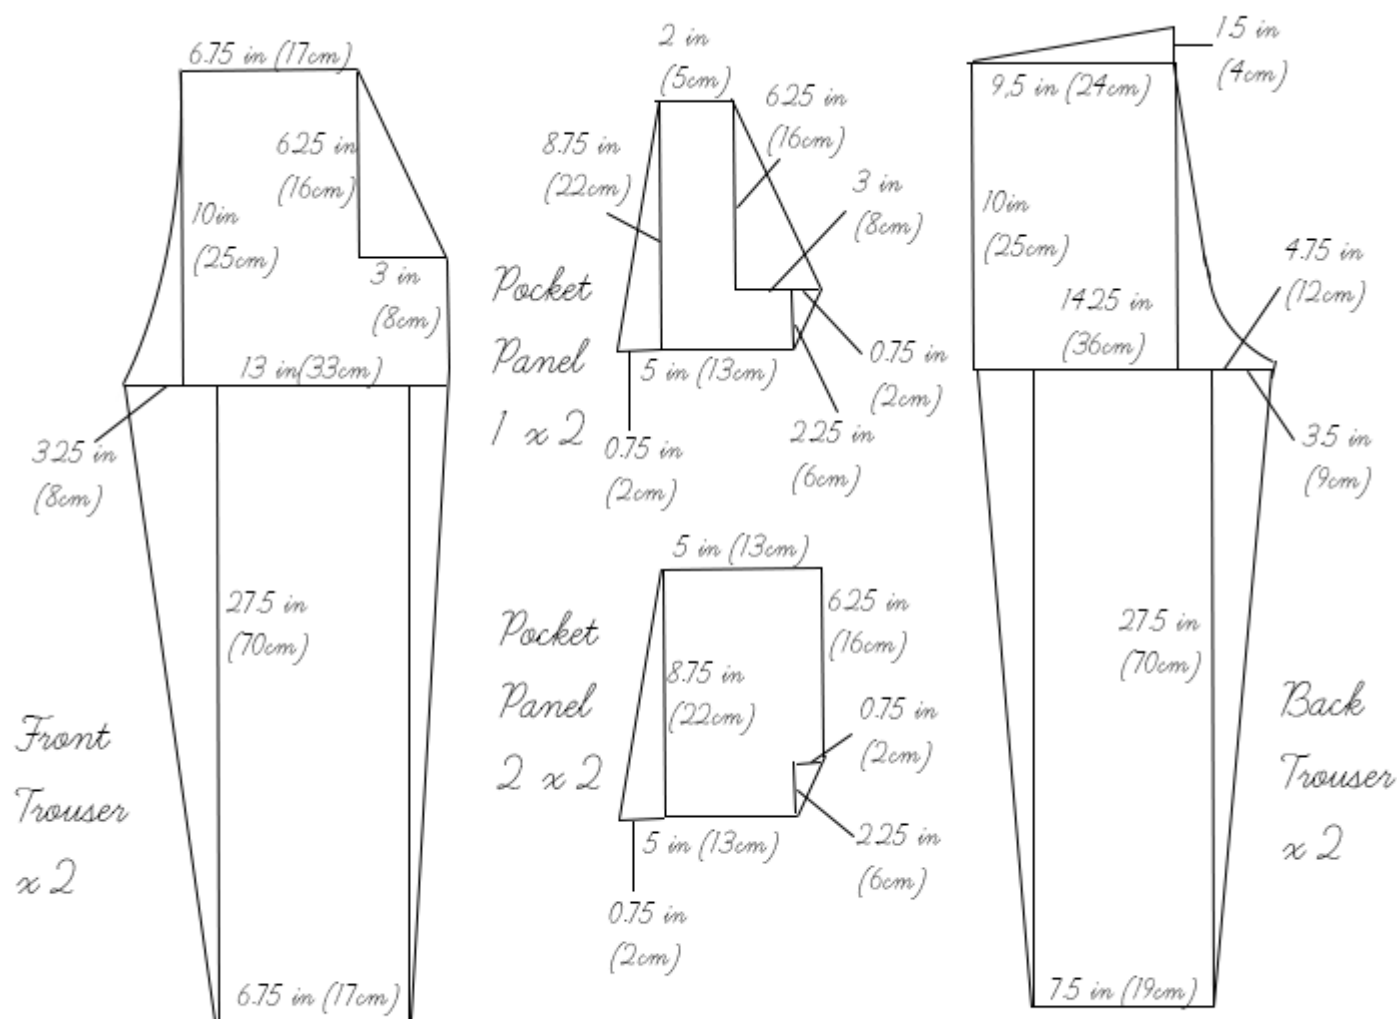 6.75 in (17cm)
625 in
(16cm)
10in
(25cm)
3 in
(8cm)
13 in(33cm)
325 in
(8cm)
275 in
(70cm)
Front
Trouser
x 2
6.75 in (17cm)
2 in
(5cm)
625 in
(16cm)
8.75 in
(22cm)
3 in
(8cm)
Pocket
Panel
1 x 2
5 in (13cm)
0.75 in
(2cm)
225 in
(6cm)
0.75 in
(2cm)
5 in (13cm)
625 in
(16cm)
8.75 in
(22cm)
Pocket
Panel
2 x 2
0.75 in
(2cm)
5 in (13cm)
225 in
(6cm)
0.75 in
(2cm)
15 in
(4cm)
9,5 in (24cm)
10in
(25cm)
4.75 in
(12cm)
1425 in
(36cm)
35 in
(9cm)
275 in
(70cm)
Back
Trouser
x 2
75 in (19cm)